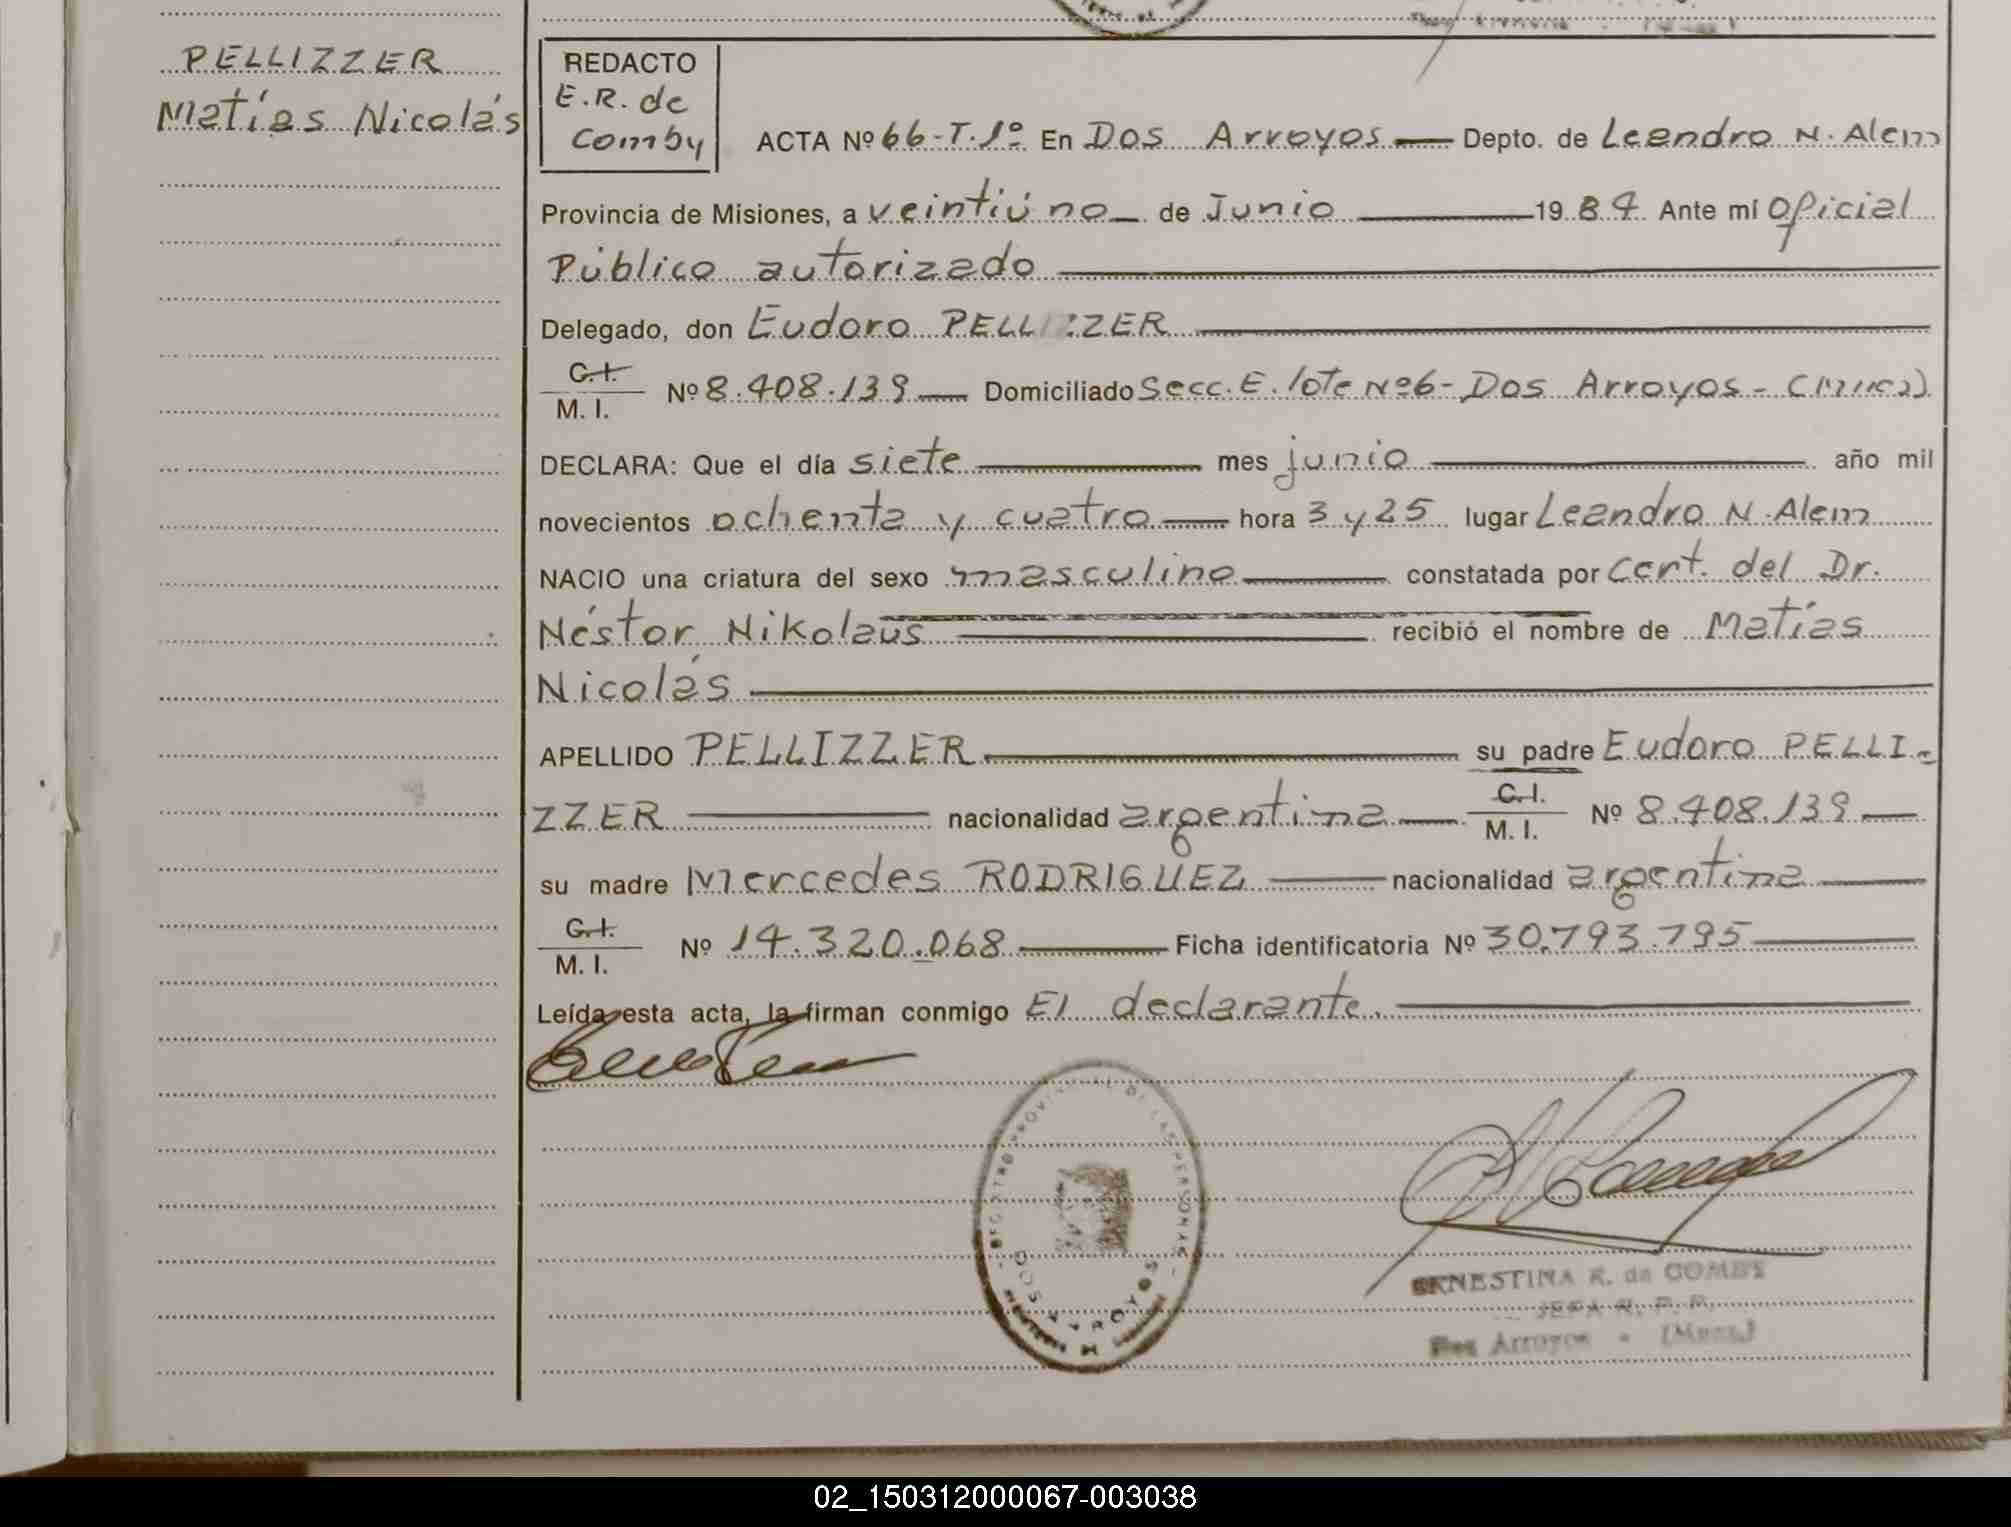 PELLIZZER
Matías Nicolás
REDACTO
E.R. de
Comby
ACTA Nº 66-T.1º En Dos Arroyos Depto. de Leandro N. Alem
Provincia de Misiones, a veintiúno de Junio 1984 Ante mí Oficial
Público autorizado
Delegado, don Eudoro PELLIZZER
C.I.
M. I. Nº 8.408.139 Domiciliado Secc. E. lote Nº6- Dos Arroyos-
DECLARA: Que el día siete mes junio año mil
novecientos ochenta y cuatro hora 3 y 25 lugar Leandro N. Alem
NACIO una criatura del sexo masculino constatada por Cert. del Dr.
Néstor Nikolaus recibió el nombre de Matías
Nicolás
APELLIDO PELLIZZER su padre Eudoro PELLI-
ZZER nacionalidad argentina C.I.
M. I. Nº 8.408.139
su madre Mercedes RODRIGUEZ nacionalidad argentina
C.I.
M. I. Nº 14.320.068 Ficha identificatoria Nº 30.793.795
Leída esta acta, la firman conmigo El declarante.
REGISTRO PROVINCIAL DE LAS PERSONAS
DOS ARROYOS
ERNESTINA R. de COMBY
JEFA R. P. P.
Dos Arroyos - (Mnes.)
02_150312000067-003038